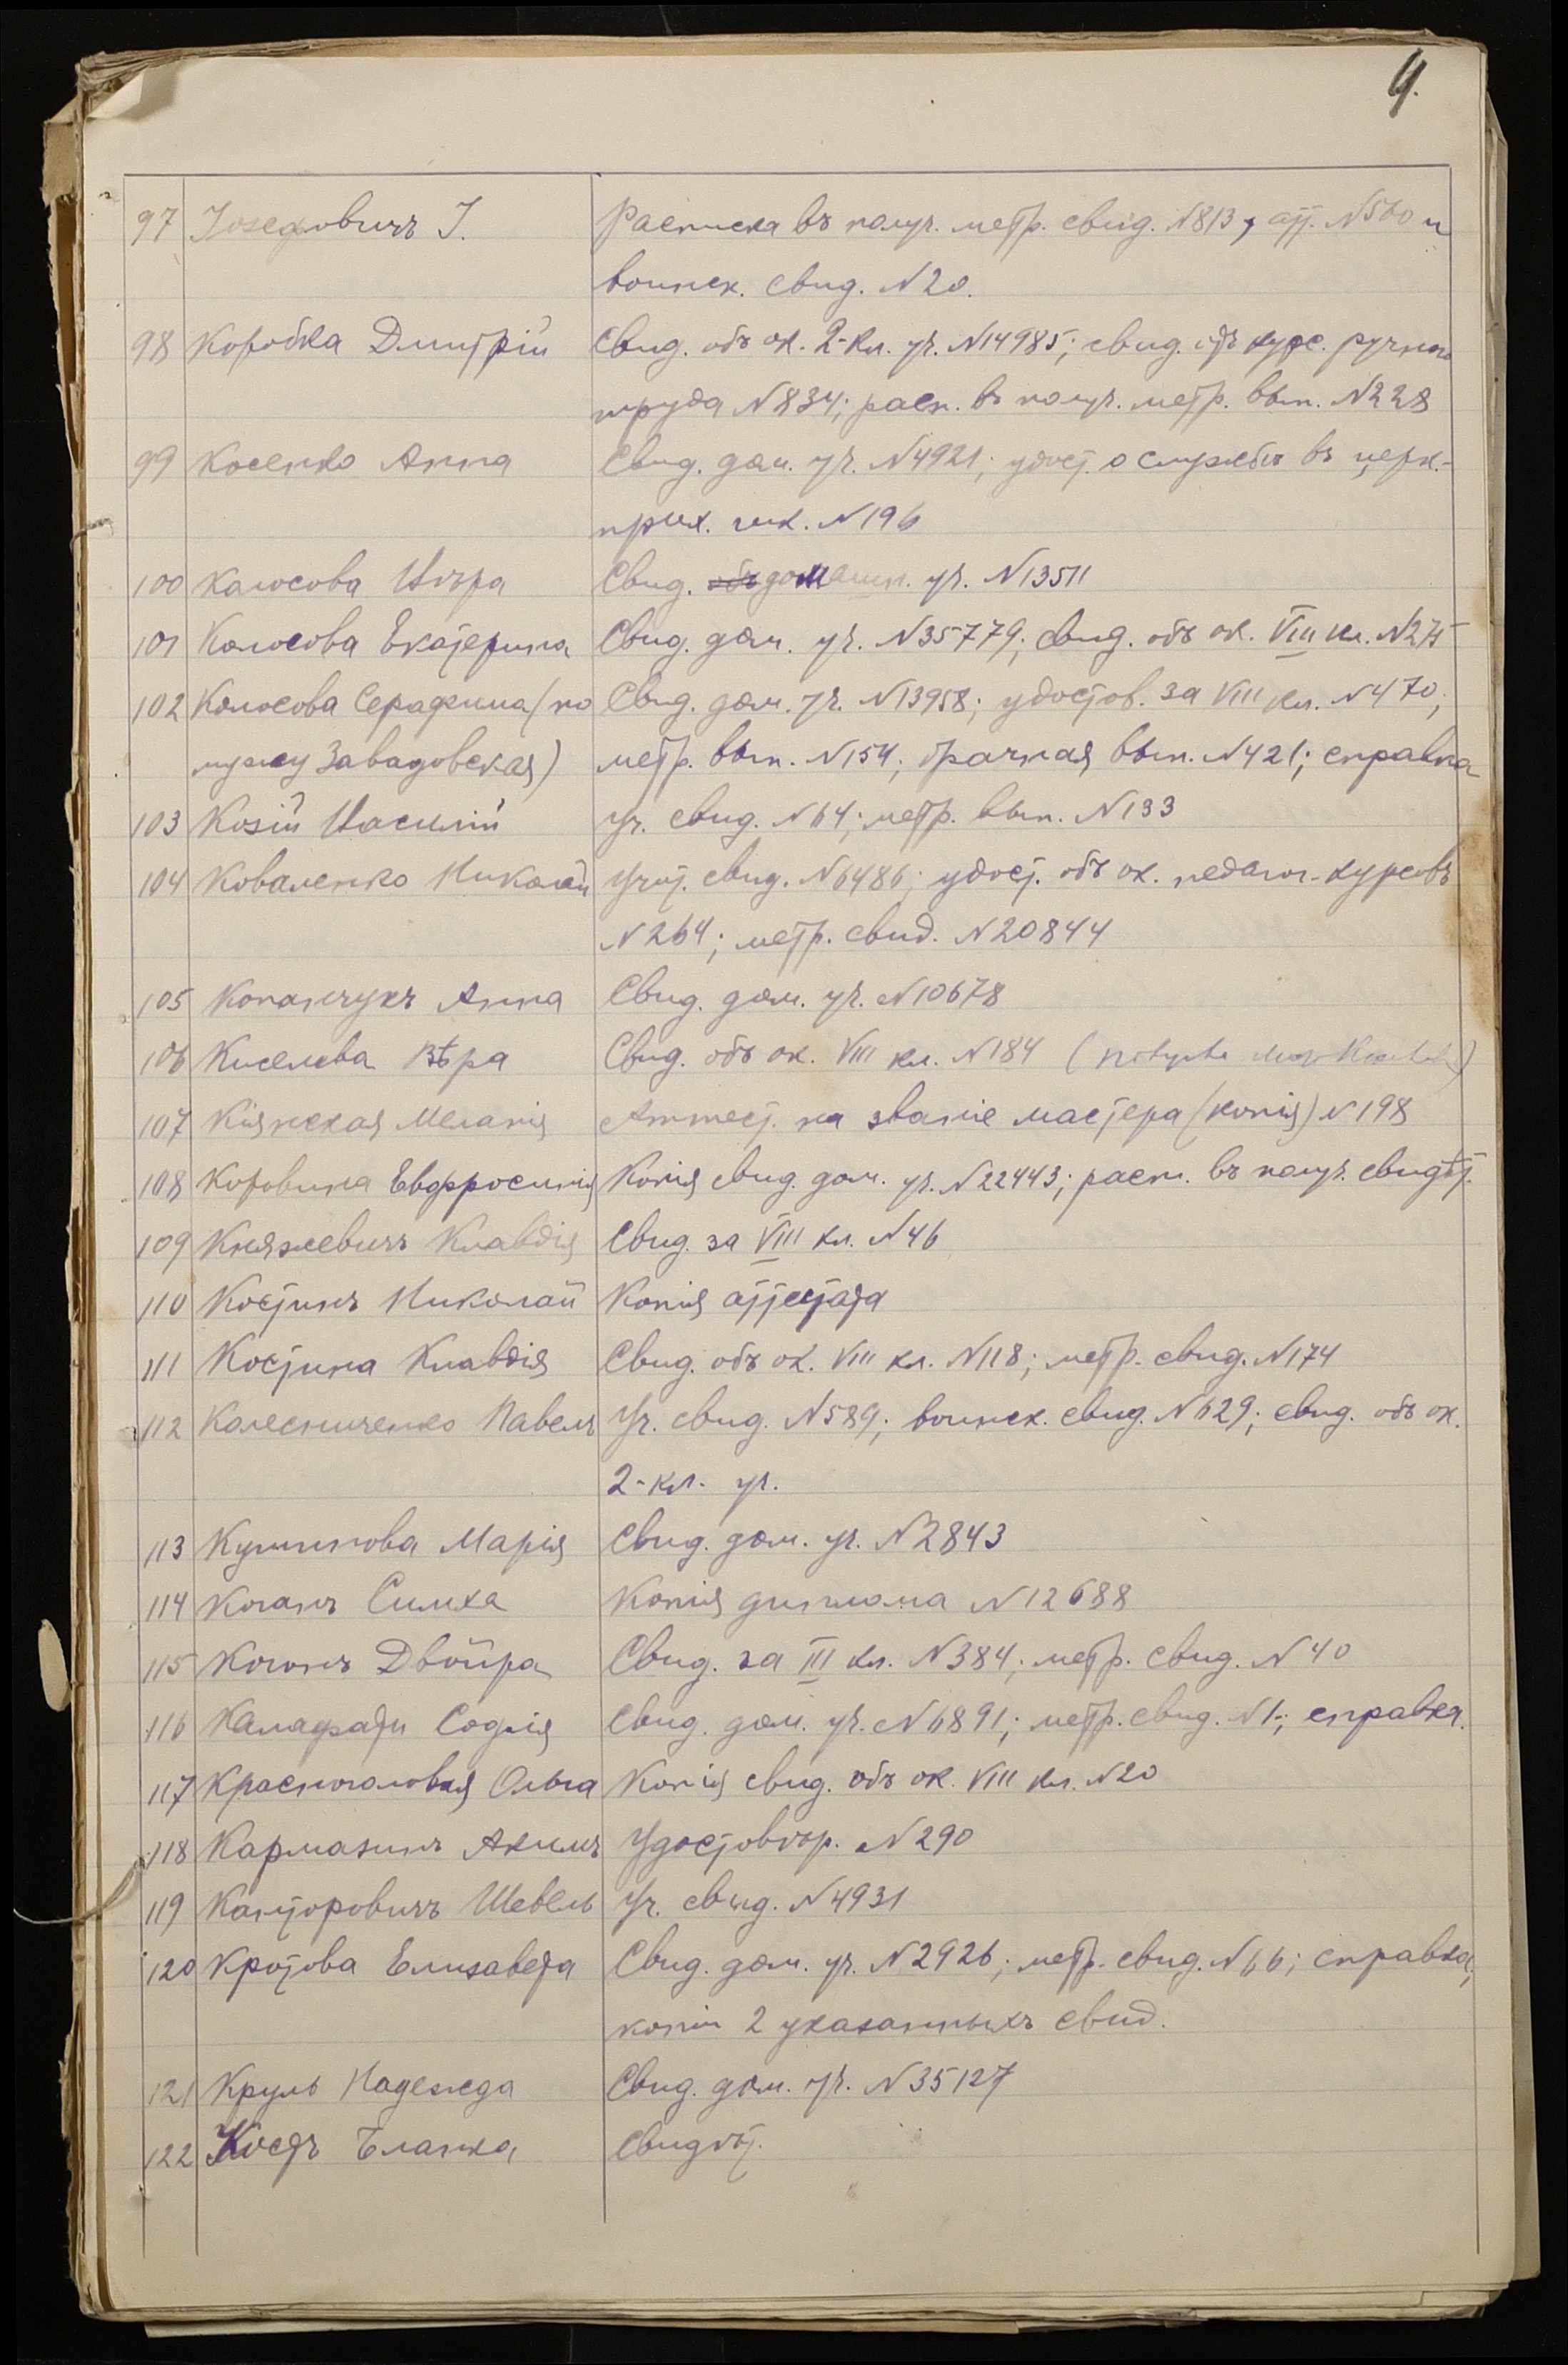 4.
97 Іозефовичъ І. Расписка въ получ. метр. свид. N813, атт. N560 и
воинск. свид. N20.
98 Коробка Дмитрій Свид. объ ок. 2-кл. уч. N14985; свид. объ курс. ручного
труда N834; расп. въ получ. метр. вып. N228
99 Косенко Анна Свид. дом. уч. N4921; удост. о службѣ въ церк.-
прих. шк. N196
100 Колосова Вѣра Свид. объ домашн. уч. N13511
101 Колосова Екатерина Свид. дом. уч. N35779; свид. объ ок. VIII кл. N275
102 Колосова Серафима (по Свид. дом. уч. N13958; удостов. за VIII кл. N470;
мужу Завадовская) метр. вып. N154; брачная вып. N421; справка
103 Козій Василій Уч. свид. N64; метр. вып. N133
104 Коваленко Николай Учит. свид. N6486; удост. объ ок. педагог. курсовъ
N264; метр. свид. N20844
105 Копанчукъ Анна Свид. дом. уч. N10678
106 Киселева Вѣра Свид. объ ок. VIII кл. N184
107 Кіянская Меланія Аттест. на званіе мастера (копія) N198
108 Коровина Евфросинія Копія свид. дом. уч. N22443; расп. въ получ. свидѣт.
109 Княжевичъ Клавдія Свид. за VIII кл. N46
110 Костинъ Николай Копія аттестата
111 Костина Клавдія Свид. объ ок. VIII кл. N118; метр. свид. N174
112 Колесниченко Павелъ Уч. свид. N589; воинск. свид. N629; свид. объ ок.
2-кл. уч.
113 Кушникова Марія Свид. дом. уч. N2843
114 Коганъ Симха Копія диплома N12688
115 Коганъ Двойра Свид. за III кл. N384; метр. свид. N40
116 Калафати Софія Свид. дом. уч. N6891; метр. свид. N1; справка.
117 Красноголовая Ольга Копія свид. объ ок. VIII кл. N20
118 Кармазинъ Акимъ Удостовѣр. N290
119 Канторовичъ Шевель Уч. свид. N4931
120 Кротова Елизавета Свид. дом. уч. N2926; метр. свид. N66; справка;
копіи 2 указанныхъ свид.
121 Круль Надежда Свид. дом. уч. N35127
122 Коедъ Бланка Свидѣт.